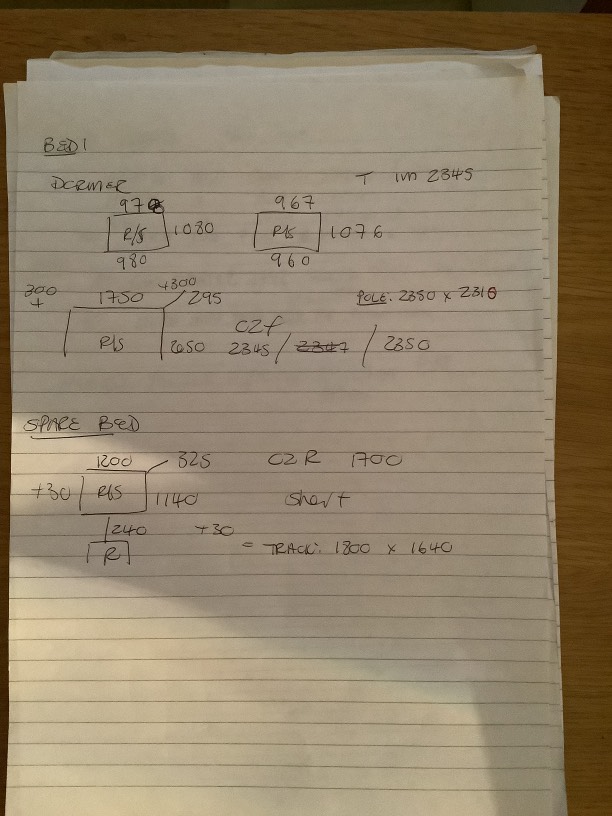 BED 1
DORMER T 1m 2345
978 967
R/S 1080 R/S 1076
980 960
300 + +300
1750 295 POLE: 2350 x 2316
C2f
R/S 2050 2345 / 2347 / 2350
SPARE BED
1200 325 C2R 1700
+30 R/S 1140 short
1240 +30
R = TRACK: 1800 x 1640